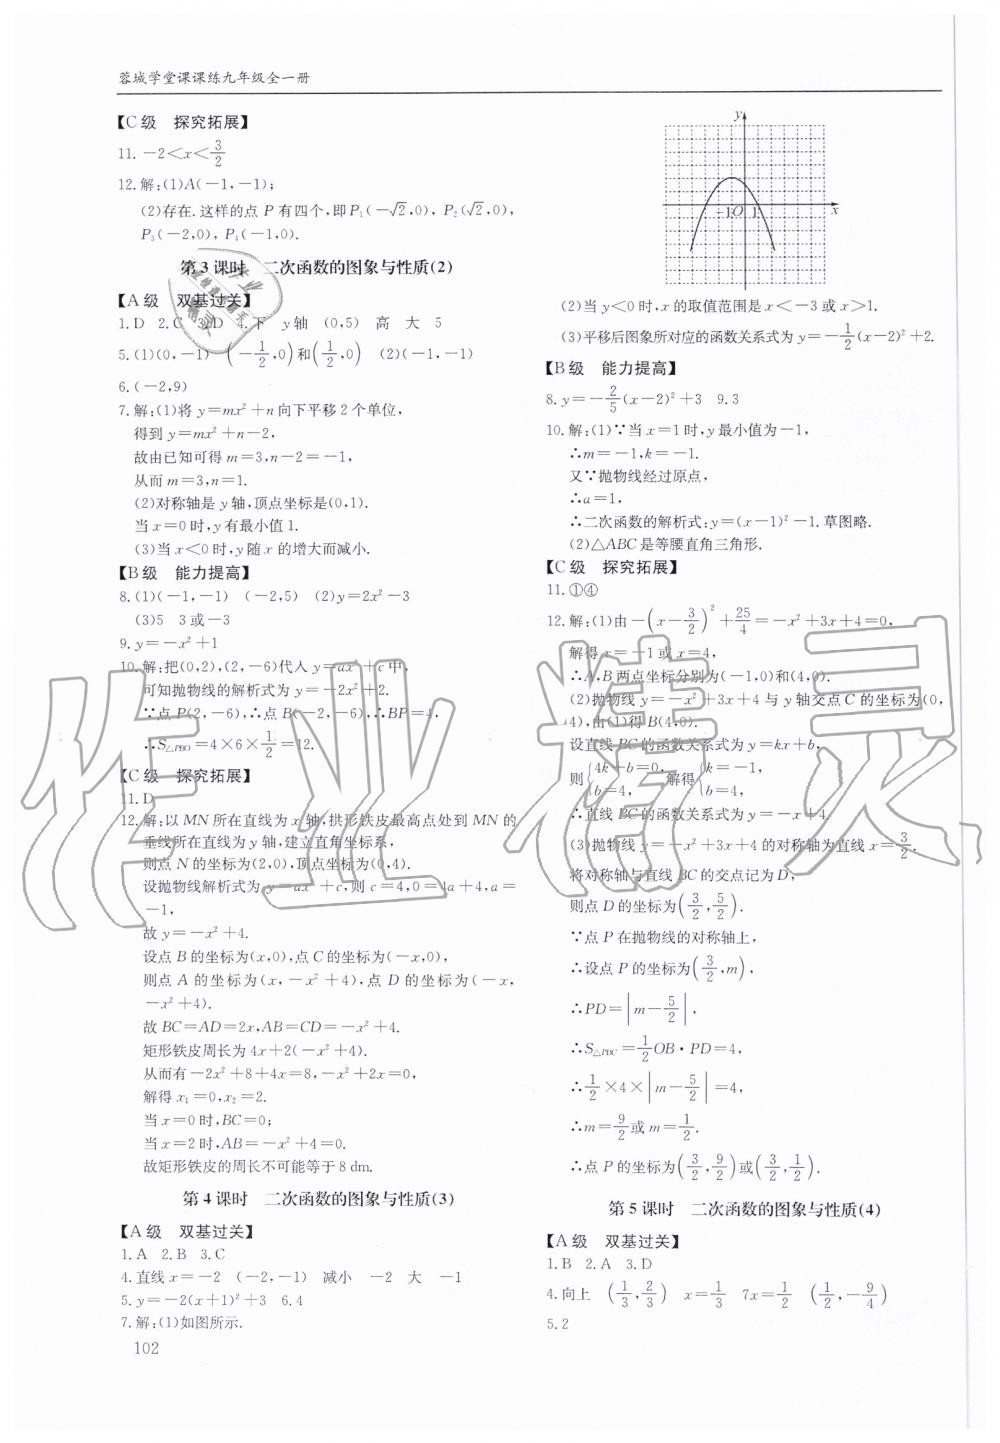 蓉城学堂课课练九年级全一册
【C级 探究拓展】
11. -2<x<3/2
12.解:(1)A(-1,-1);
(2)存在.这样的点P有四个,即P₁(-√2,0),P₂(√2,0),
P₃(-2,0),P₄(-1,0).
第3课时 二次函数的图象与性质(2)
【A级 双基过关】
1.D 2.C 3.D 4.下 y轴 (0,5) 高 大 5
5.(1)(0,-1) (-1/2,0)和(1/2,0) (2)(-1,-1)
6.(-2,9)
7.解:(1)将y=mx²+n向下平移2个单位,
得到y=mx²+n-2,
故由已知可得m=3,n-2=-1,
从而m=3,n=1.
(2)对称轴是y轴,顶点坐标是(0,1).
当x=0时,y有最小值1.
(3)当x<0时,y随x的增大而减小.
【B级 能力提高】
8.(1)(-1,-1) (-2,5) (2)y=2x²-3
(3)5 3或-3
9.y=-x²+1
10.解:把(0,2),(2,-6)代入y=ax²+c中,
可知抛物线的解析式为y=-2x²+2.
∵点P(2,-6),∴点B(-2,-6),∴BP=4,
∴S△PBO=4×6×1/2=12.
【C级 探究拓展】
11.D
12.解:以MN所在直线为x轴,拱形铁皮最高点处到MN的
垂线所在直线为y轴,建立直角坐标系,
则点N的坐标为(2,0),顶点坐标为(0,4).
设抛物线解析式为y=ax²+c,则c=4,0=4a+4,a=
-1,
故y=-x²+4.
设点B的坐标为(x,0),点C的坐标为(-x,0),
则点A的坐标为(x,-x²+4),点D的坐标为(-x,
-x²+4).
故BC=AD=2x,AB=CD=-x²+4.
矩形铁皮周长为4x+2(-x²+4).
从而有-2x²+8+4x=8,-x²+2x=0,
解得x₁=0,x₂=2.
当x=0时,BC=0;
当x=2时,AB=-x²+4=0.
故矩形铁皮的周长不可能等于8 dm.
第4课时 二次函数的图象与性质(3)
【A级 双基过关】
1.A 2.B 3.C
4.直线x=-2 (-2,-1) 减小 -2 大 -1
5.y=-2(x+1)²+3 6.4
7.解:(1)如图所示.
102
y
-1 O 1 x
(2)当y<0时,x的取值范围是x<-3或x>1.
(3)平移后图象所对应的函数关系式为y=-1/2(x-2)²+2.
【B级 能力提高】
8.y=-2/5(x-2)²+3 9.3
10.解:(1)∵当x=1时,y最小值为-1,
∴m=-1,k=-1.
又∵抛物线经过原点,
∴a=1,
∴二次函数的解析式:y=(x-1)²-1.草图略.
(2)△ABC是等腰直角三角形.
【C级 探究拓展】
11.①④
12.解:(1)由-(x-3/2)²+25/4=-x²+3x+4=0,
解得x=-1或x=4,
∴A,B两点坐标分别为(-1,0)和(4,0).
(2)抛物线y=-x²+3x+4与y轴交点C的坐标为(0,
4),由(1)得B(4,0).
设直线BC的函数关系式为y=kx+b,
则{4k+b=0, b=4, 解得{k=-1, b=4,
∴直线BC的函数关系式为y=-x+4.
(3)抛物线y=-x²+3x+4的对称轴为直线x=3/2,
将对称轴与直线BC的交点记为D,
则点D的坐标为(3/2,5/2).
∵点P在抛物线的对称轴上,
∴设点P的坐标为(3/2,m),
∴PD=|m-5/2|,
∴S△PBC=1/2OB·PD=4,
∴1/2×4×|m-5/2|=4,
∴m=9/2或m=1/2.
∴点P的坐标为(3/2,9/2)或(3/2,1/2).
第5课时 二次函数的图象与性质(4)
【A级 双基过关】
1.B 2.A 3.D
4.向上 (1/3,2/3) x=1/3 7x=1/2 (1/2,-9/4)
5.2
作业精灵